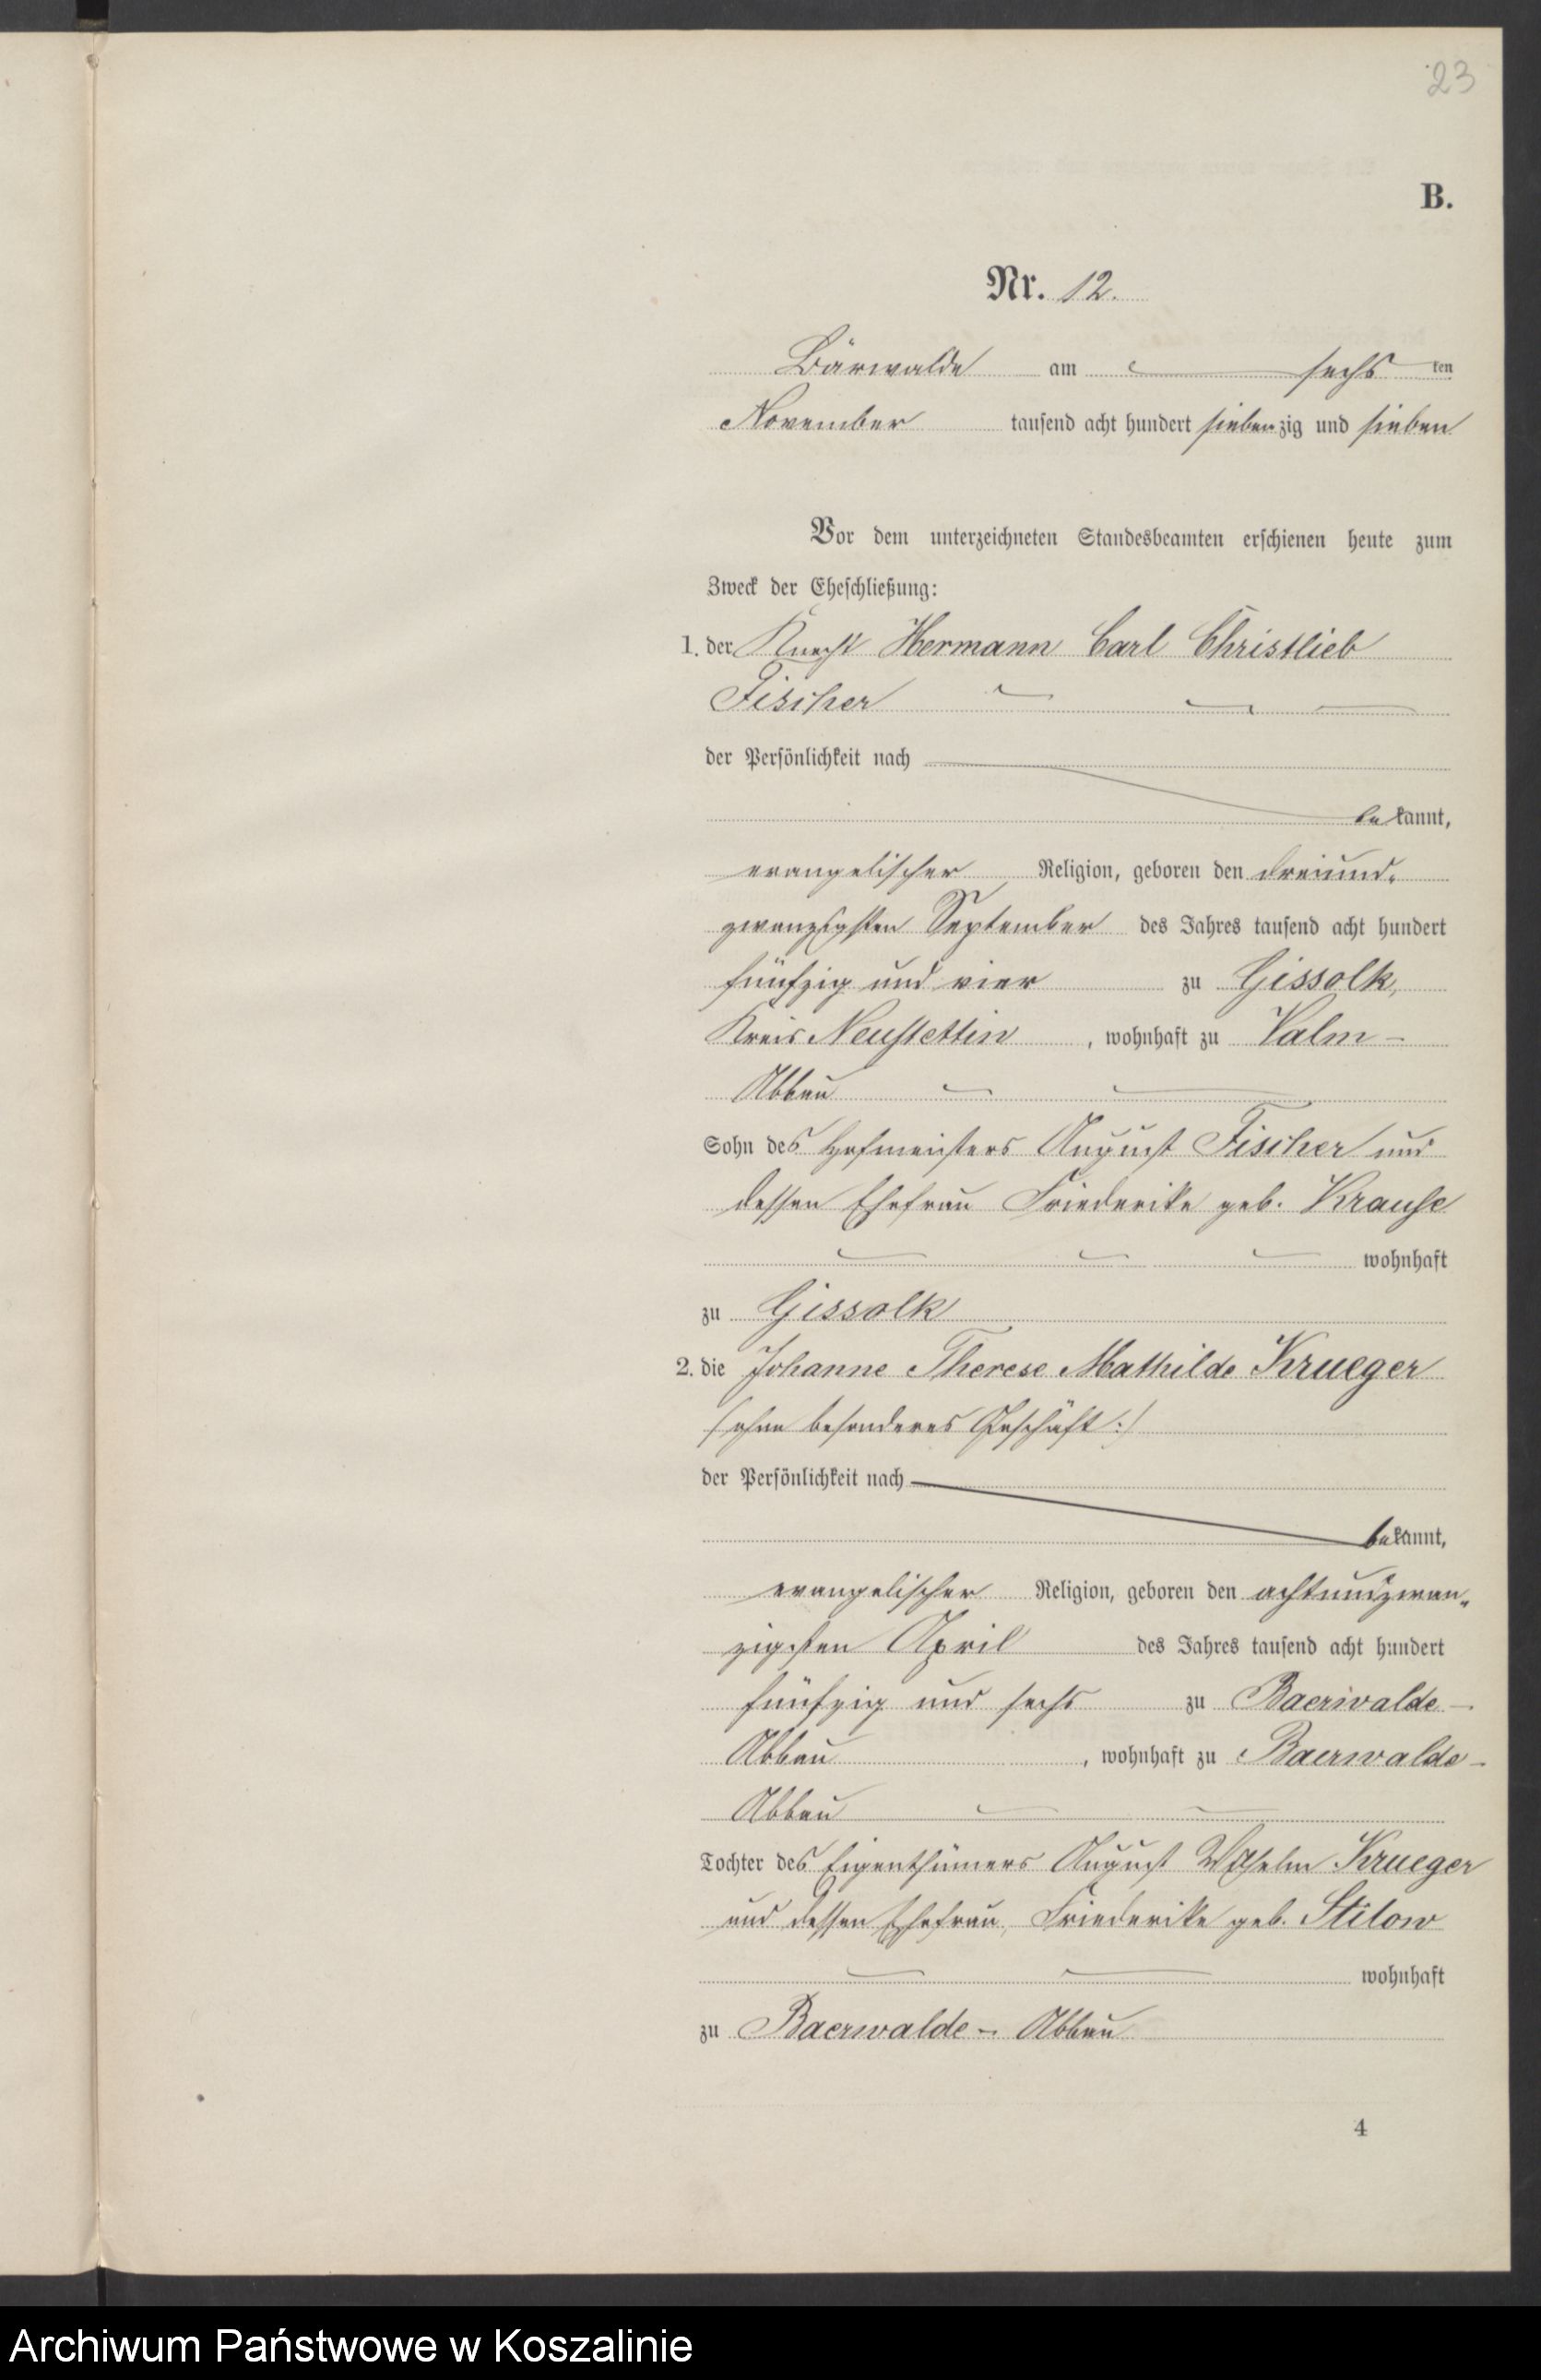 23
B.
Nr. 12.
Bärwalde am sechs ten
November tausend acht hundert siebenzig und sieben
Vor dem unterzeichneten Standesbeamten erschienen heute zum
Zweck der Eheschließung:
1. der Knecht Hermann Carl Christlieb
Fischer
der Persönlichkeit nach
bekannt,
evangelischer Religion, geboren den dreiund-
zwanzigsten September des Jahres tausend acht hundert
fünfzig und vier zu Gissolk,
Kreis Neustettin, wohnhaft zu Valm-
Abbau
Sohn des Hofmeisters August Fischer und
dessen Ehefrau Friederike geb. Krause
wohnhaft
zu Gissolk
2. die Johanne Therese Mathilde Krueger
/ohne besonderes Geschäft:/
der Persönlichkeit nach
bekannt,
evangelischer Religion, geboren den achtundzwan-
zigsten April des Jahres tausend acht hundert
fünfzig und sechs zu Baerwalde-
Abbau, wohnhaft zu Baerwalde-
Abbau
Tochter des Eigenthümers August Wilhelm Krueger
und dessen Ehefrau, Friederike geb. Stilow
wohnhaft
zu Baerwalde-Abbau
4
Archiwum Państwowe w Koszalinie